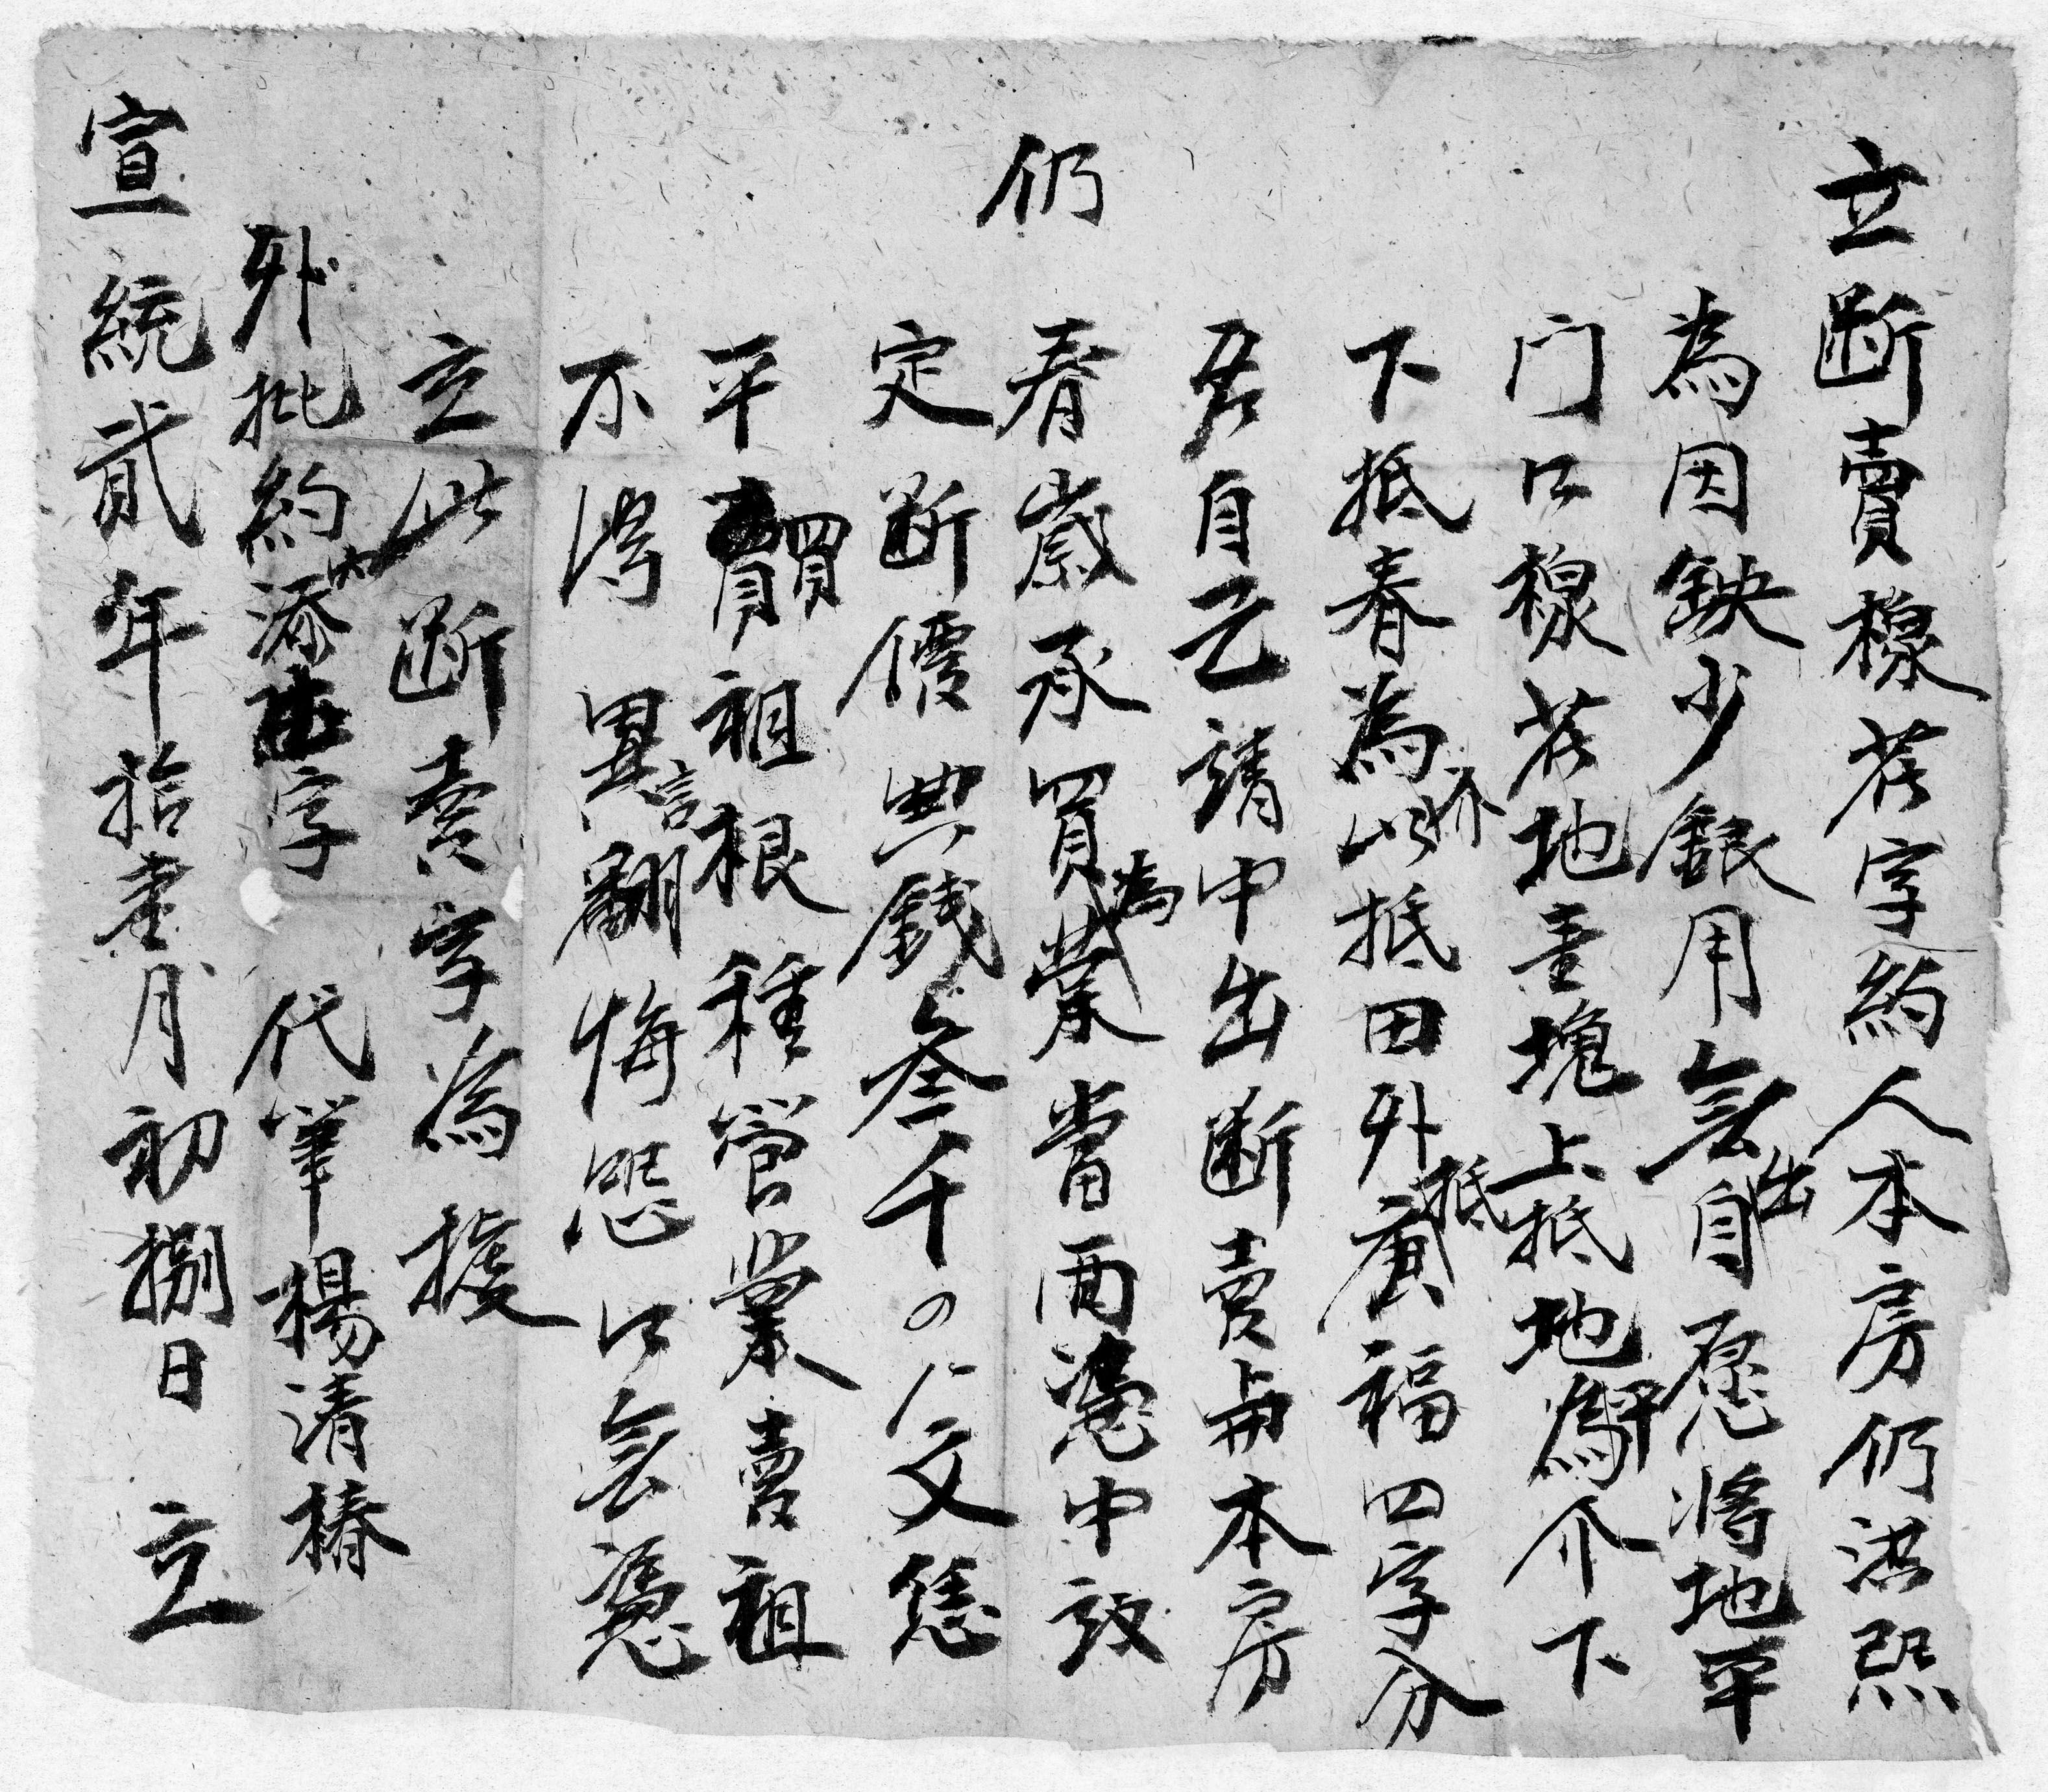 立断賣㯲茬字約人本房仍洪熙
為因缺少銀用無出自愿將地平
门口㯲茬地壹塊上抵地坪為介下
下抵春為介以抵田外抵為福四字分
君自己請中出断賣与本房
仍春嵗承買為業當面憑中議
定断價典錢叁千〇八文恁
平買祖根種管業賣祖
不得異言翻悔恐口無憑
立此断賣字為據
外批約内添字
代筆楊清椿
宣統貳年拾壹月初捌日 立